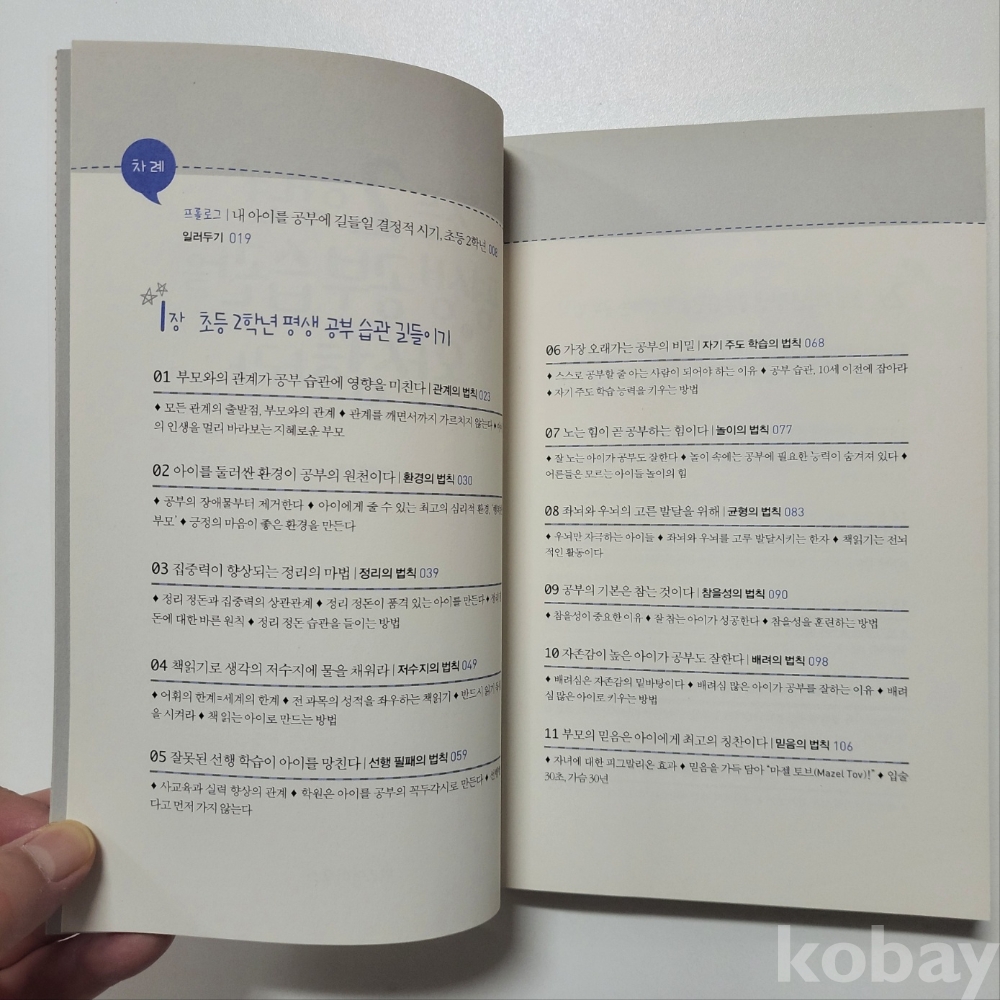 차례
프롤로그 | 내 아이를 공부에 길들일 결정적 시기, 초등 2학년 008
일러두기 019
1장 초등 2학년 평생 공부 습관 길들이기
01 부모와의 관계가 공부 습관에 영향을 미친다 | 관계의 법칙 023
♦ 모든 관계의 출발점, 부모와의 관계 ♦ 관계를 깨면서까지 가르치지 않는다 ♦
의 인생을 멀리 바라보는 지혜로운 부모
02 아이를 둘러싼 환경이 공부의 원천이다 | 환경의 법칙 030
♦ 공부의 장애물부터 제거한다 ♦ 아이에게 줄 수 있는 최고의 심리적 환경,
부모' ♦ 긍정의 마음이 좋은 환경을 만든다
03 집중력이 향상되는 정리의 마법 | 정리의 법칙 039
♦ 정리 정돈과 집중력의 상관관계 ♦ 정리 정돈이 품격 있는 아이를 만든다 ♦ 정리
돈에 대한 바른 원칙 ♦ 정리 정돈 습관을 들이는 방법
04 책읽기로 생각의 저수지에 물을 채워라 | 저수지의 법칙 049
♦ 어휘의 한계=세계의 한계 ♦ 전 과목의 성적을 좌우하는 책읽기 ♦ 반드시 읽기
을 시켜라 ♦ 책 읽는 아이로 만드는 방법
05 잘못된 선행 학습이 아이를 망친다 | 선행 필패의 법칙 059
♦ 사교육과 실력 향상의 관계 ♦ 학원은 아이를 공부의 꼭두각시로 만든다 ♦
다고 먼저 가지 않는다
06 가장 오래가는 공부의 비밀 | 자기 주도 학습의 법칙 068
♦ 스스로 공부할 줄 아는 사람이 되어야 하는 이유 ♦ 공부 습관, 10세 이전에 잡아라
♦ 자기 주도 학습 능력을 키우는 방법
07 노는 힘이 곧 공부하는 힘이다 | 놀이의 법칙 077
♦ 잘 노는 아이가 공부도 잘한다 ♦ 놀이 속에는 공부에 필요한 능력이 숨겨져 있다 ♦
어른들은 모르는 아이들 놀이의 힘
08 좌뇌와 우뇌의 고른 발달을 위해 | 균형의 법칙 083
♦ 우뇌만 자극하는 아이들 ♦ 좌뇌와 우뇌를 고루 발달시키는 한자 ♦ 책읽기는 전뇌
적인 활동이다
09 공부의 기본은 참는 것이다 | 참을성의 법칙 090
♦ 참을성이 중요한 이유 ♦ 잘 참는 아이가 성공한다 ♦ 참을성을 훈련하는 방법
10 자존감이 높은 아이가 공부도 잘한다 | 배려의 법칙 098
♦ 배려심은 자존감의 밑바탕이다 ♦ 배려심 많은 아이가 공부를 잘하는 이유 ♦ 배려
심 많은 아이로 키우는 방법
11 부모의 믿음은 아이에게 최고의 칭찬이다 | 믿음의 법칙 106
♦ 자녀에 대한 피그말리온 효과 ♦ 믿음을 가득 담아 "마젤 토브(Mazel Tov)!" ♦ 입술
30초, 가슴 30년
kobay